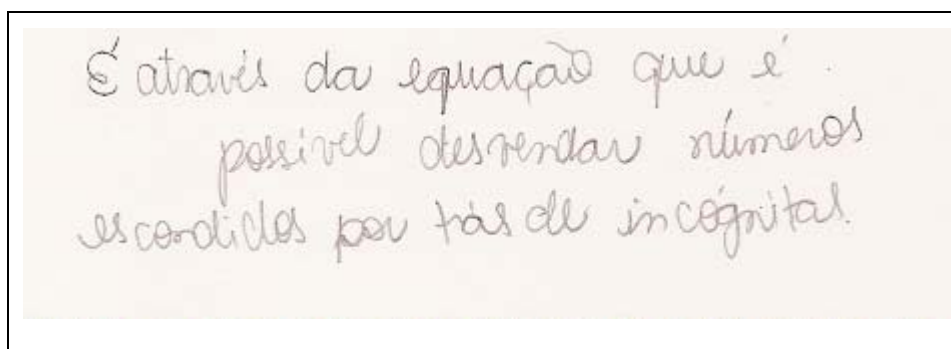 É através da equação que é
possivel desvendar números
escondidos por trás de incógnitas.